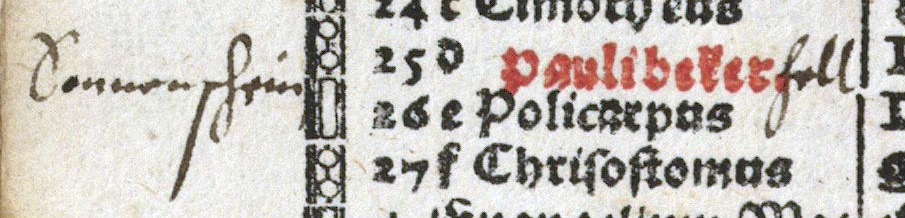 24 c Timotheus
Sonnenschein
25 d Pauli beker. hell
26 e Policarpus
27 f Chrisostomus